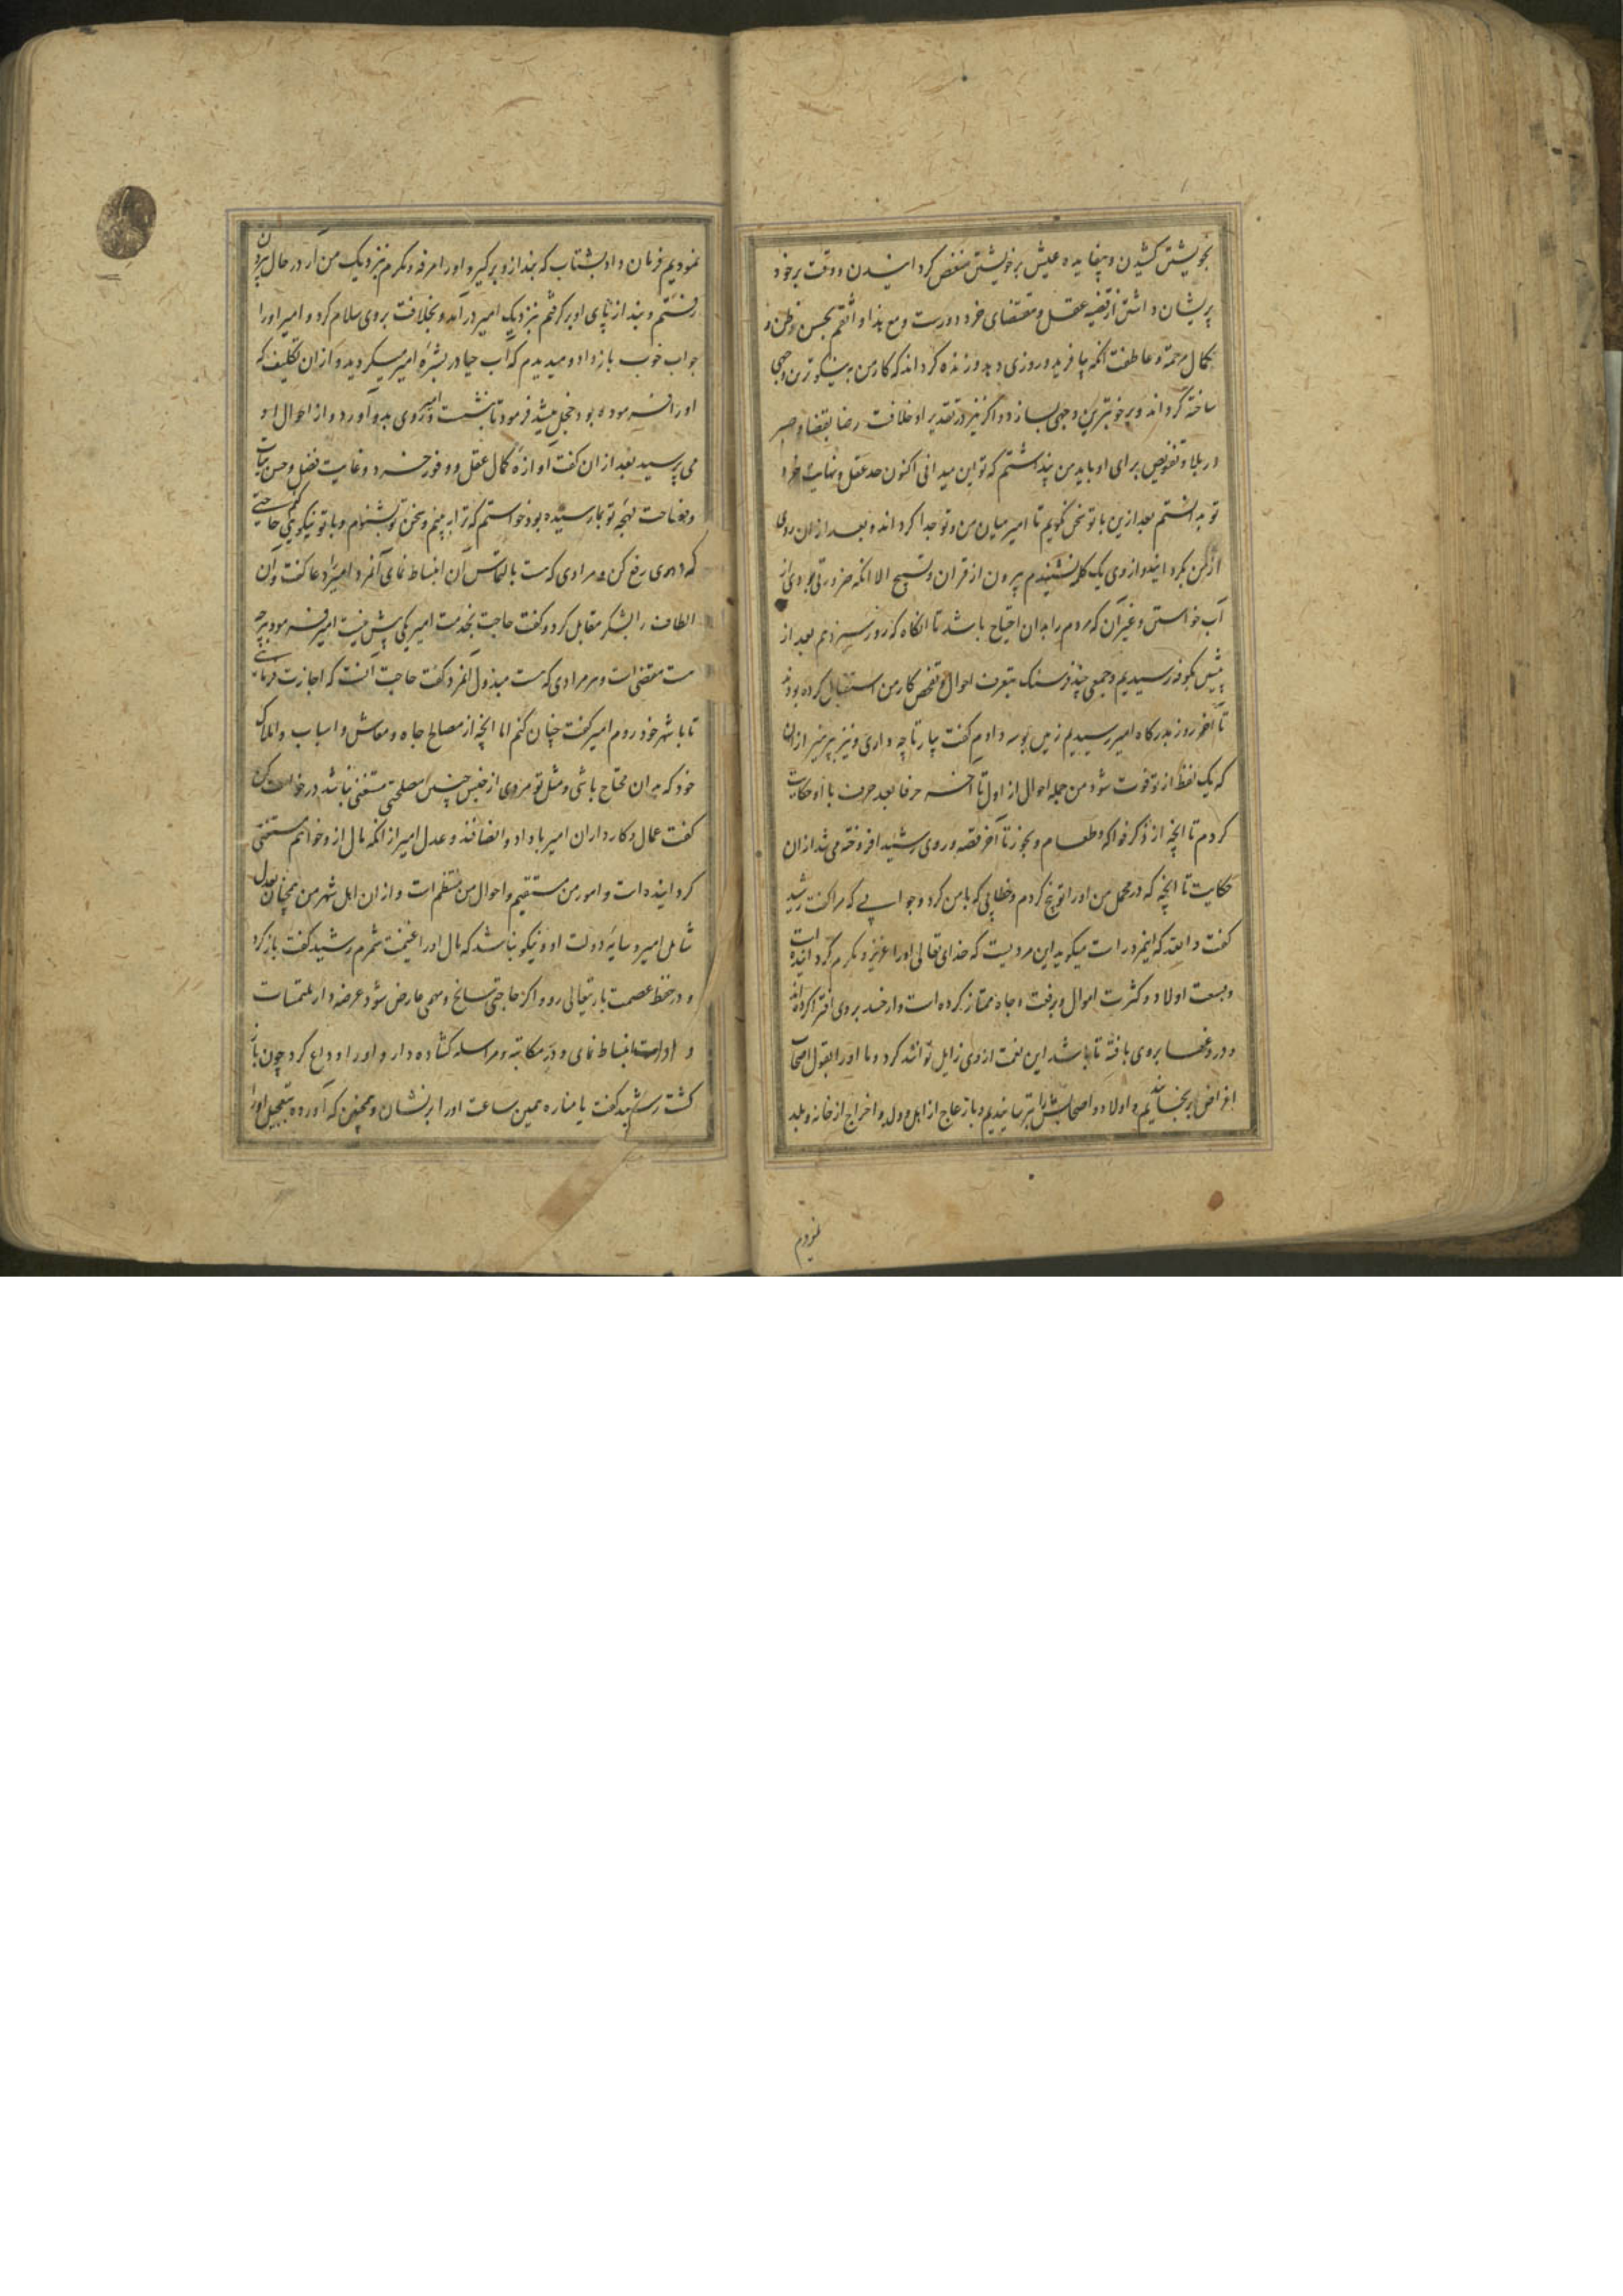 بخویشتن کشیدن و بیفایده عیش برخویشتن منغص کردانیدن و وقت برخود
پریشان داشتن از قضیه عقل و مقتضای خرد دورست و مع هذا واثقم بحسن وظن و
بکمال مرحمت و عاطفت انکه بیافرید و روزی دهد و زنده کرداند که کار من به نیکوترین وجهی
ساخته کرداند و برخوبترین وجهی بسازد و اکر نیز در تقدیر او خلافت رضا بقضا و صبر
در بلا و تفویض برای او باید من پنداشتم که تو این میدانی اکنون حد عقل و نهایت
تو بدانستم بعد ازین با تو سخن نکویم تا امیر میان من و تو جدا کرداند و بعد ازان روی
از من بکردانید و از وی یک کلمه نشنیدم بیرون از قران و تسبیح الا انکه ضرورتی بودی از
آب خواستن و غیر آن که مردم را بدان احتیاج باشد تا انکاه که روز سیزدهم بعد از
پیشین بکوفه رسیدیم و جمعی چند فرسنک بتعرف احوال و تفحص کار من استقبال کرده بودند
تا آخر روز بدرکاه امیر رسیدیم زمین بوسه دادم کفت بیار تا چه داری و نیز بپرهیز ازان
که یک لفظ از تو فوت شود من جمله احوال از اول تا آخر حرفا بعد حرف با او حکایت
کردم تا انچه از ذکر فواکه و طعام و بخور تا آخر قصه و روی رشید افروخته می شد ازان
حکایت تا انچه که در محمل من او را توبیخ کردم و خطابی که با من کرد و جوابی که مرا کفت رشید
کفت والله که اینمرد راست میکوید این مردیست که خدای تعالی او را عزیز و مکرم کردانیده است
و بسعت اولاد و کثرت اموال و برفعت و جاه ممتاز کرده است و از حسد بر وی افترا کرده‌اند
و دروغها بر وی بافته تا باشد این نعمت از وی زایل توانند کرد و ما او را بقول اصحاب
اغراض برنجانیدیم و اولاد و اصحابش را بترسانیدیم و بازعاج از اهل و ولد و اخراج از خانه و بلد
نمودیم فرمان داد بشتاب که بند ازو برکیر و او را مرفه و مکرم بنزدیک من آر در حال بیرون
رفتم و بند از پای او برکرفتم بنزدیک امیر در آمد و بخلافت بروی سلام کرد و امیر او را
جواب خوب باز داد و میدیدم که آب حیا در بشره امیر میکردید و ازان تکلیف که
او را فرموده بود خجل میشد فرمود تا بنشست و امیر روی بدو آورد و از احوال او
می پرسید بعد ازان کفت آوازه کمال عقل و وفور خرد و غایت فضل و حسن سیاست
و فصاحت لهجه تو بما رسیده بود خواستم که ترا ببینم و سخن تو بشنوم و با تو نیکویی کنم حاجتی
که داری رفع کن و مرادی که هست بالتماس آن انبساط نمای آنمرد امیر را دعا کفت و آن
الطاف را بشکر مقابل کرد و کفت حاجت بخدمت امیر یکی بیش نیست امیر فرمود هرچه
هست مقتضی است و هر مرادی که هست مبذول آنمرد کفت حاجت آنست که اجازت فرمائی
تا با شهر خود روم امیر کفت چنان کنم اما انچه از مصالح جاه و معاش و اسباب و املاک
خود که بدان محتاج باشی و مثل تو مردی از جنس چنین مصلحتی مستغنی نباشد درخواست کن
کفت عمال و کارداران امیر با داد و انصافند و عدل امیر از انکه مال ازو خواهم مستغنی
کردانیده است و امور من مستقیم و احوال من منتظم است و ازان اهل شهر من همچنان بعدل
شامل امیر و سایه دولت او و نیکو نباشد که مال او را غنیمت شمرم رشید کفت باز کرد
و در حفظ عصمت باریتعالی رو و اکر حاجتی سانح و مهمی عارض شود عرضه دار ملتمسات
و ارادت انبساط نمای و در مکاتبه و مراسله کشاده دار و او را وداع کرد چون باز
کشت رشید کفت یا مناره همین ساعت او را برنشان و همچنین که آورده بتعجیل او را